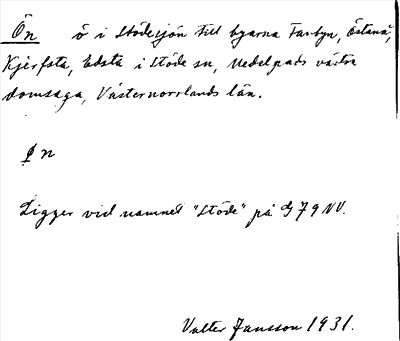 Ön ö i Stödesjön till byarna Farbyn, Östanå,
Kjerfsta, Edsta i Stöde sn, Medelpads västra
domsaga, Västernorrlands län.
Ligger vid namnet "Stöde" på G 79 NV.
Valter Jansson 1931.